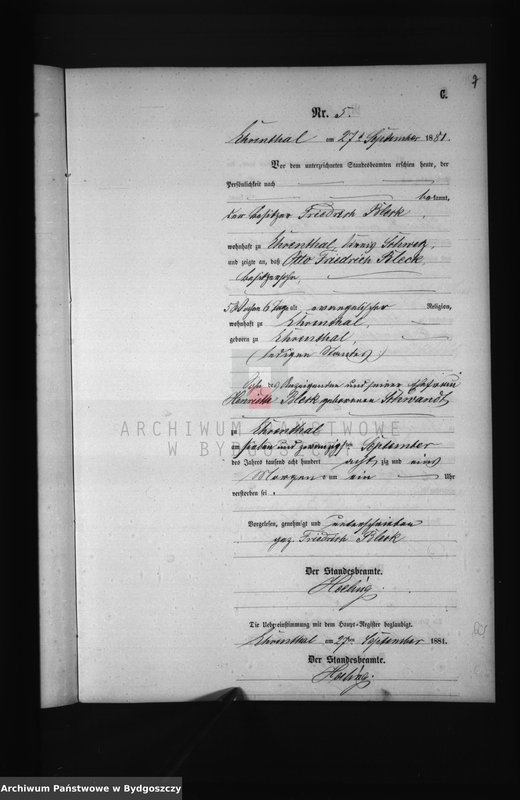 7
C.
Nr. 5.
Ehrenthal am 27ten September 1881.
Vor dem unterzeichneten Standesbeamten erschien heute, der
Persönlichkeit nach
bekannt,
der Besitzer Friedrich Bleck,
wohnhaft zu Ehrenthal, Kreis Schwetz
und zeigte an, daß Otto Friedrich Bleck,
Besitzersohn,
5 Wochen 6 Tage alt evangelischer Religion,
wohnhaft zu Ehrenthal,
geboren zu Ehrenthal,
(ledigen Standes)
Sohn des Anzeigenden und seiner Ehefrau
Henriette Bleck geborenen Schwandt,
zu Ehrenthal
am sieben und zwanzigsten September
des Jahres tausend acht hundert achtzig und eins
Morgens um ein Uhr
verstorben sei.
Vorgelesen, genehmigt und unterschrieben
gez. Friedrich Bleck
Der Standesbeamte.
Die Uebereinstimmung mit dem Haupt-Register beglaubigt.
Ehrenthal am 27ten September 1881.
Der Standesbeamte.
ARCHIWUM PAŃSTWOWE
W BYDGOSZCZY
Archiwum Państwowe w Bydgoszczy